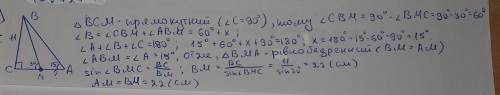 B
11
C 30° M 15° A
△BCM - прямокутний (∠C=90°), тому ∠CBM = 90° - ∠BMC = 90° - 30 = 60°
∠B = ∠CBM + ∠ABM = 60° + x;
∠A + ∠B + ∠C = 180°; 15° + 60° + x + 90° = 180°; x = 180° - 15° - 60° - 90° = 15°
∠ABM = ∠A = 15°, отже, △BMA - рівнобедрений (BM = AM)
sin∠BMC = BC/BM; BM = BC/sin∠BMC = 11/sin30° = 22 (см)
AM = BM = 22 (см)